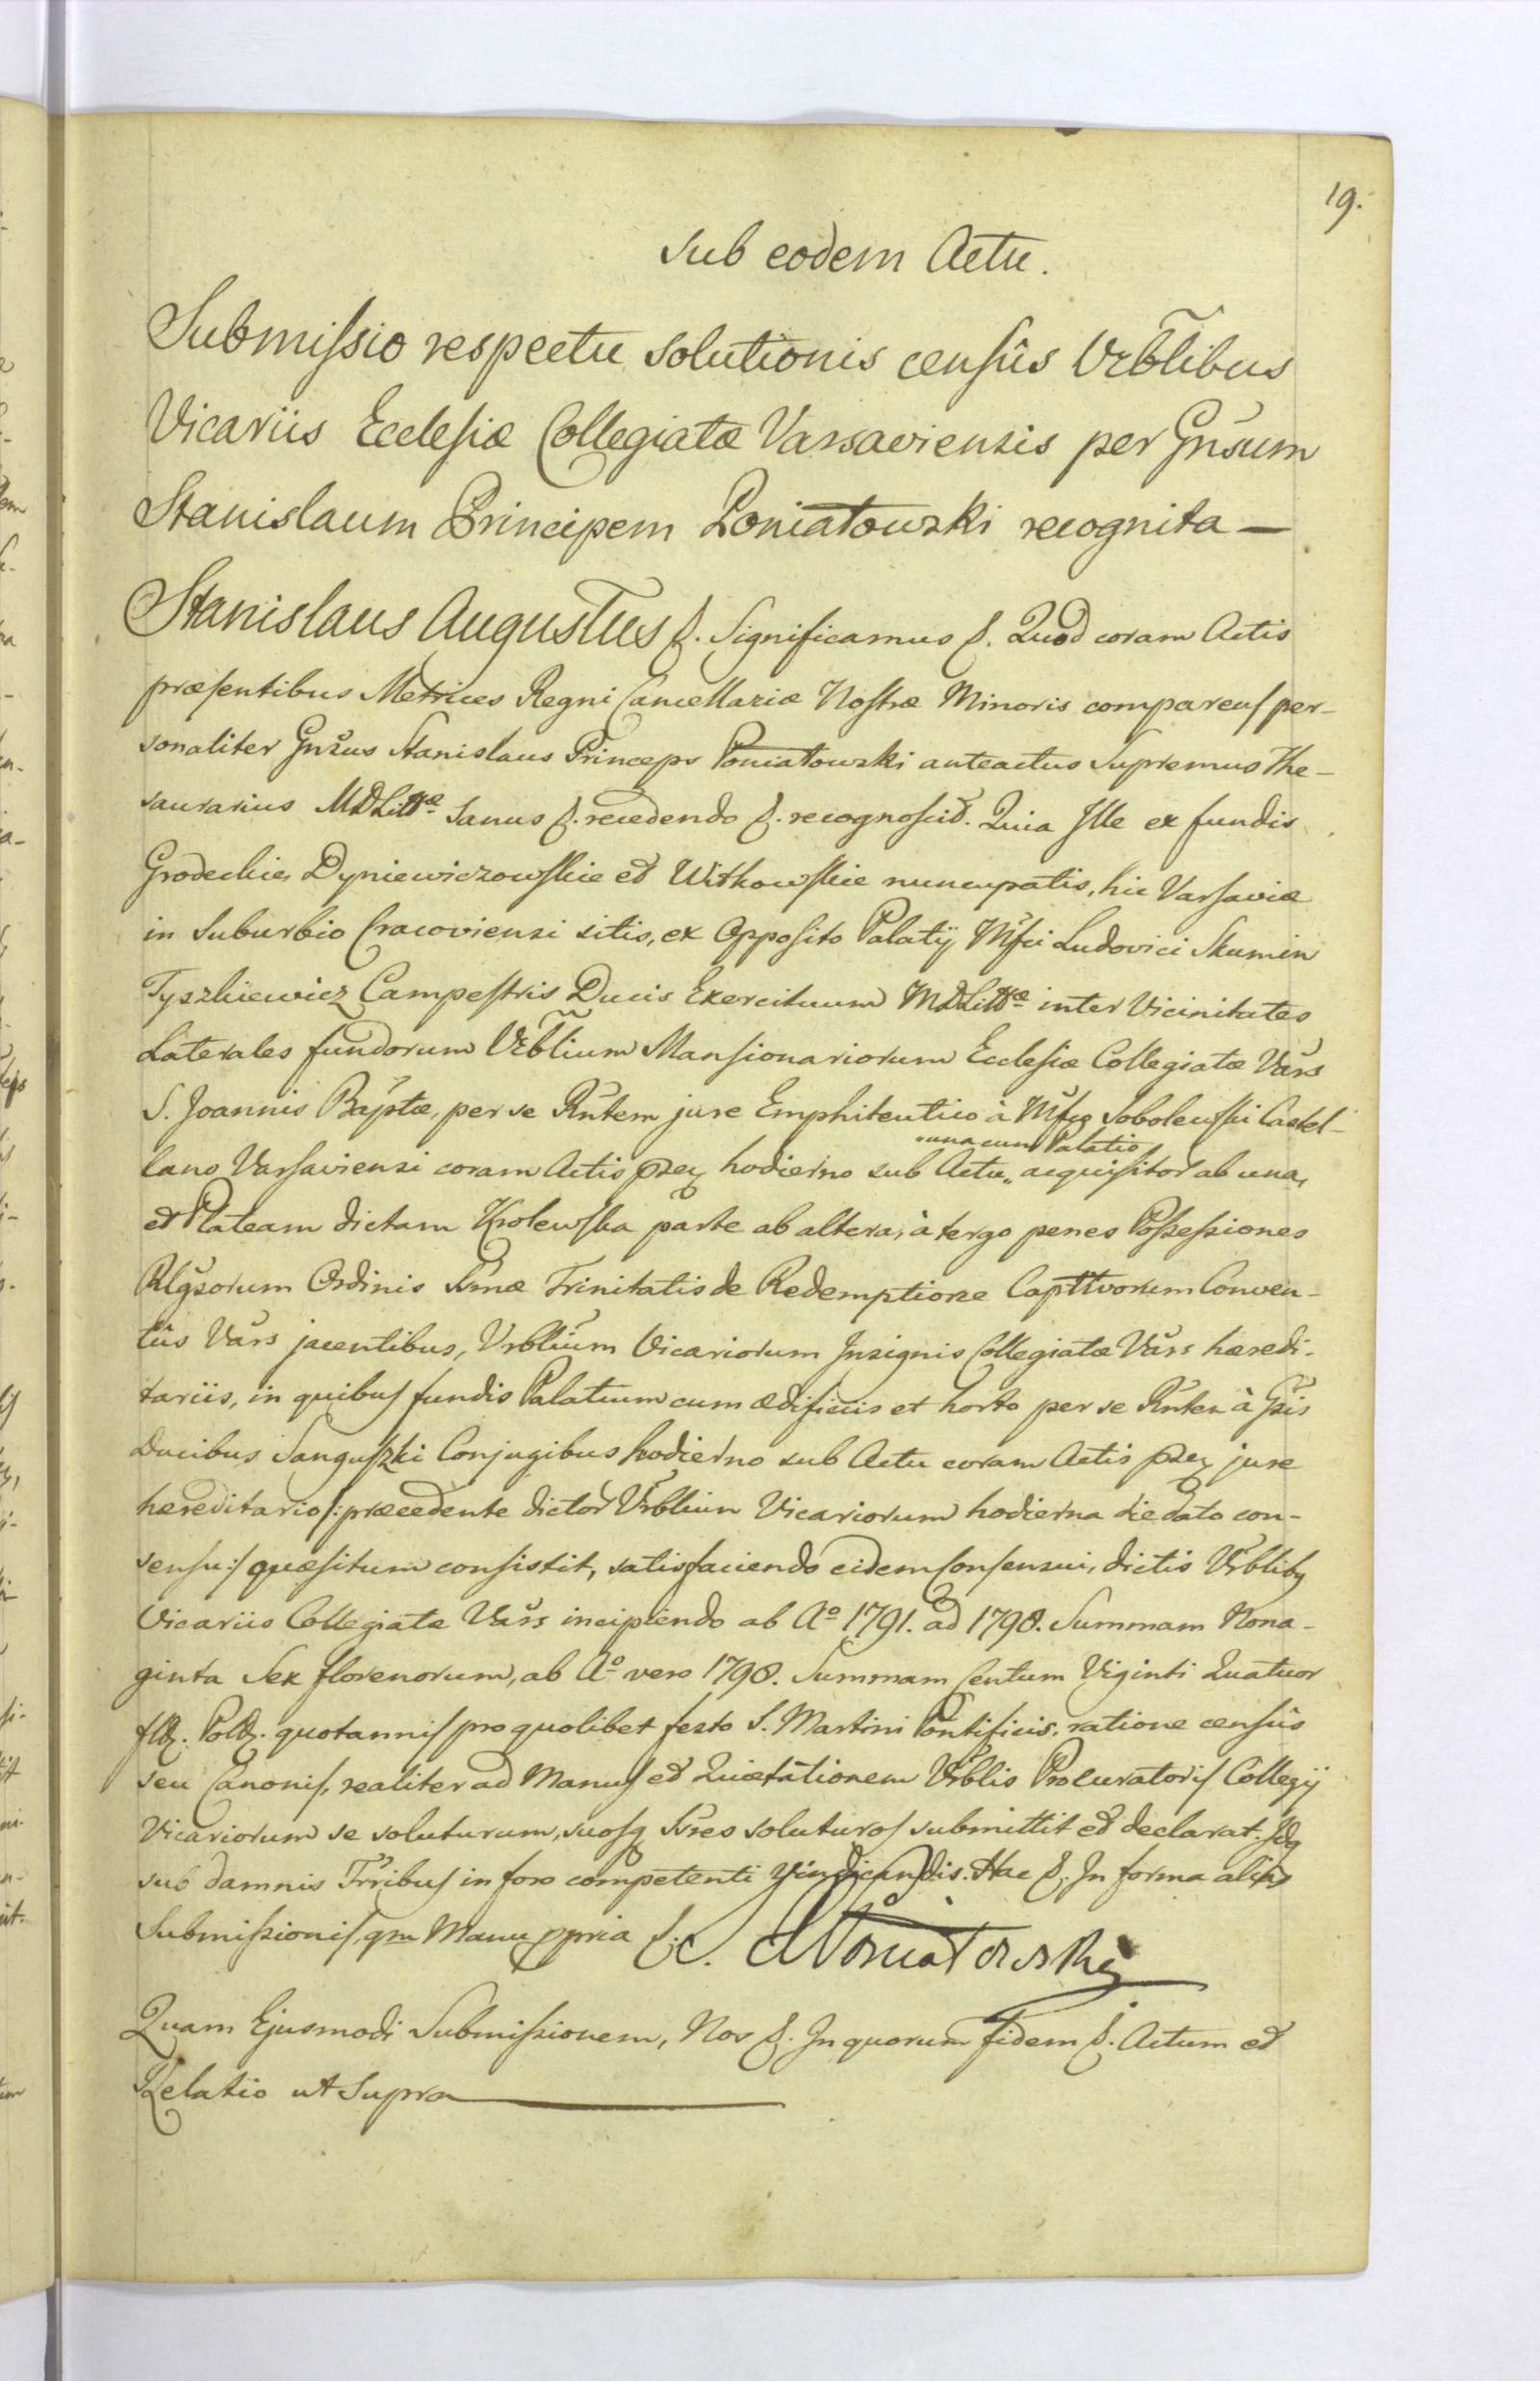 19.
Sub eodem Actu.
Submissio respectu solutionis censûs Vrblibus
Vicariis Ecclesiæ Collegiatæ Varsaviensis per Gnsum
Stanislaum Principem Poniatowski recognita —
Stanislaus Augustus &. Significamus &. Quod coram Actis
præsentibus Metrices Regni Cancellariæ Nostræ Minoris comparens per-
sonaliter Gnsus Stanislaus Princeps Poniatowski anteactus Supremus The-
saurarius MDLittæ Sanus &. recedendo &. recognoscit. Quia Ille ex fundis
Grodeckie, Dyniewiczowskie et Witkowskie nuncupatis, hic Varsaviæ
in Suburbio Cracoviensi sitis, ex Opposito Palatÿ Mfci Ludovici Skumin
Tyszkiewicz Campestris Ducis Exercituum MDLittæ inter Vicinitates
Laterales fundorum Vrblium Mansionariorum Ecclesiæ Collegiatæ Vars
S. Joannis Baptæ, per se Rntem jure Emphiteutico à Mfco Sobolewski Castel-
"una cum Palatio
lano Varsaviensi coram Actis psz hodierno sub Actu „ acquisitor ab una,
et Plateam dictam Krolewska parte ab altera, à tergo penes Possessiones
Rlgsorum Ordinis Ssmæ Trinitatis de Redemptione Capttvorum Conven-
tûs Vars jacentibus, Vrblium Vicariorum Insignis Collegiatæ Vars hæredi-
tariis, in quibus fundis Palatium cum ædificiis et horto per se Rntem à Gsis
Ducibus Sanguszki Conjugibus hodierno sub Actu coram Actis psz jure
hæreditario /: præcedente dictor Vrblium Vicariorum hodierna die dato con-
sensu :/ quæsitum consistit, satisfaciendo eidem Consensui, dictis Vrblibq
Vicariis Collegiatæ Vars incipiendo ab Aº 1791. ad 1798. Summam Nona-
ginta Sex florenorum, ab Aº vero 1798. Summam Centum Viginti Quatuor
flz. Polz. quotannis pro quolibet festo S. Martini Pontificis, ratione censûs
seu Canonis, realiter ad Manus et Quietationem Vrblis Procuratoris Collegÿ
Vicariorum se soluturum, suosq Ssres soluturos submittit et declarat. Idq
sub damnis Trribus in foro competenti vindicandis. Hac &. In forma alias
Submissionis, qm Manu ppria &. S. Poniatowski
Quam Ejusmodi Submissionem, Nos &. In quorum fidem &. Actum et
Relatio ut Supra